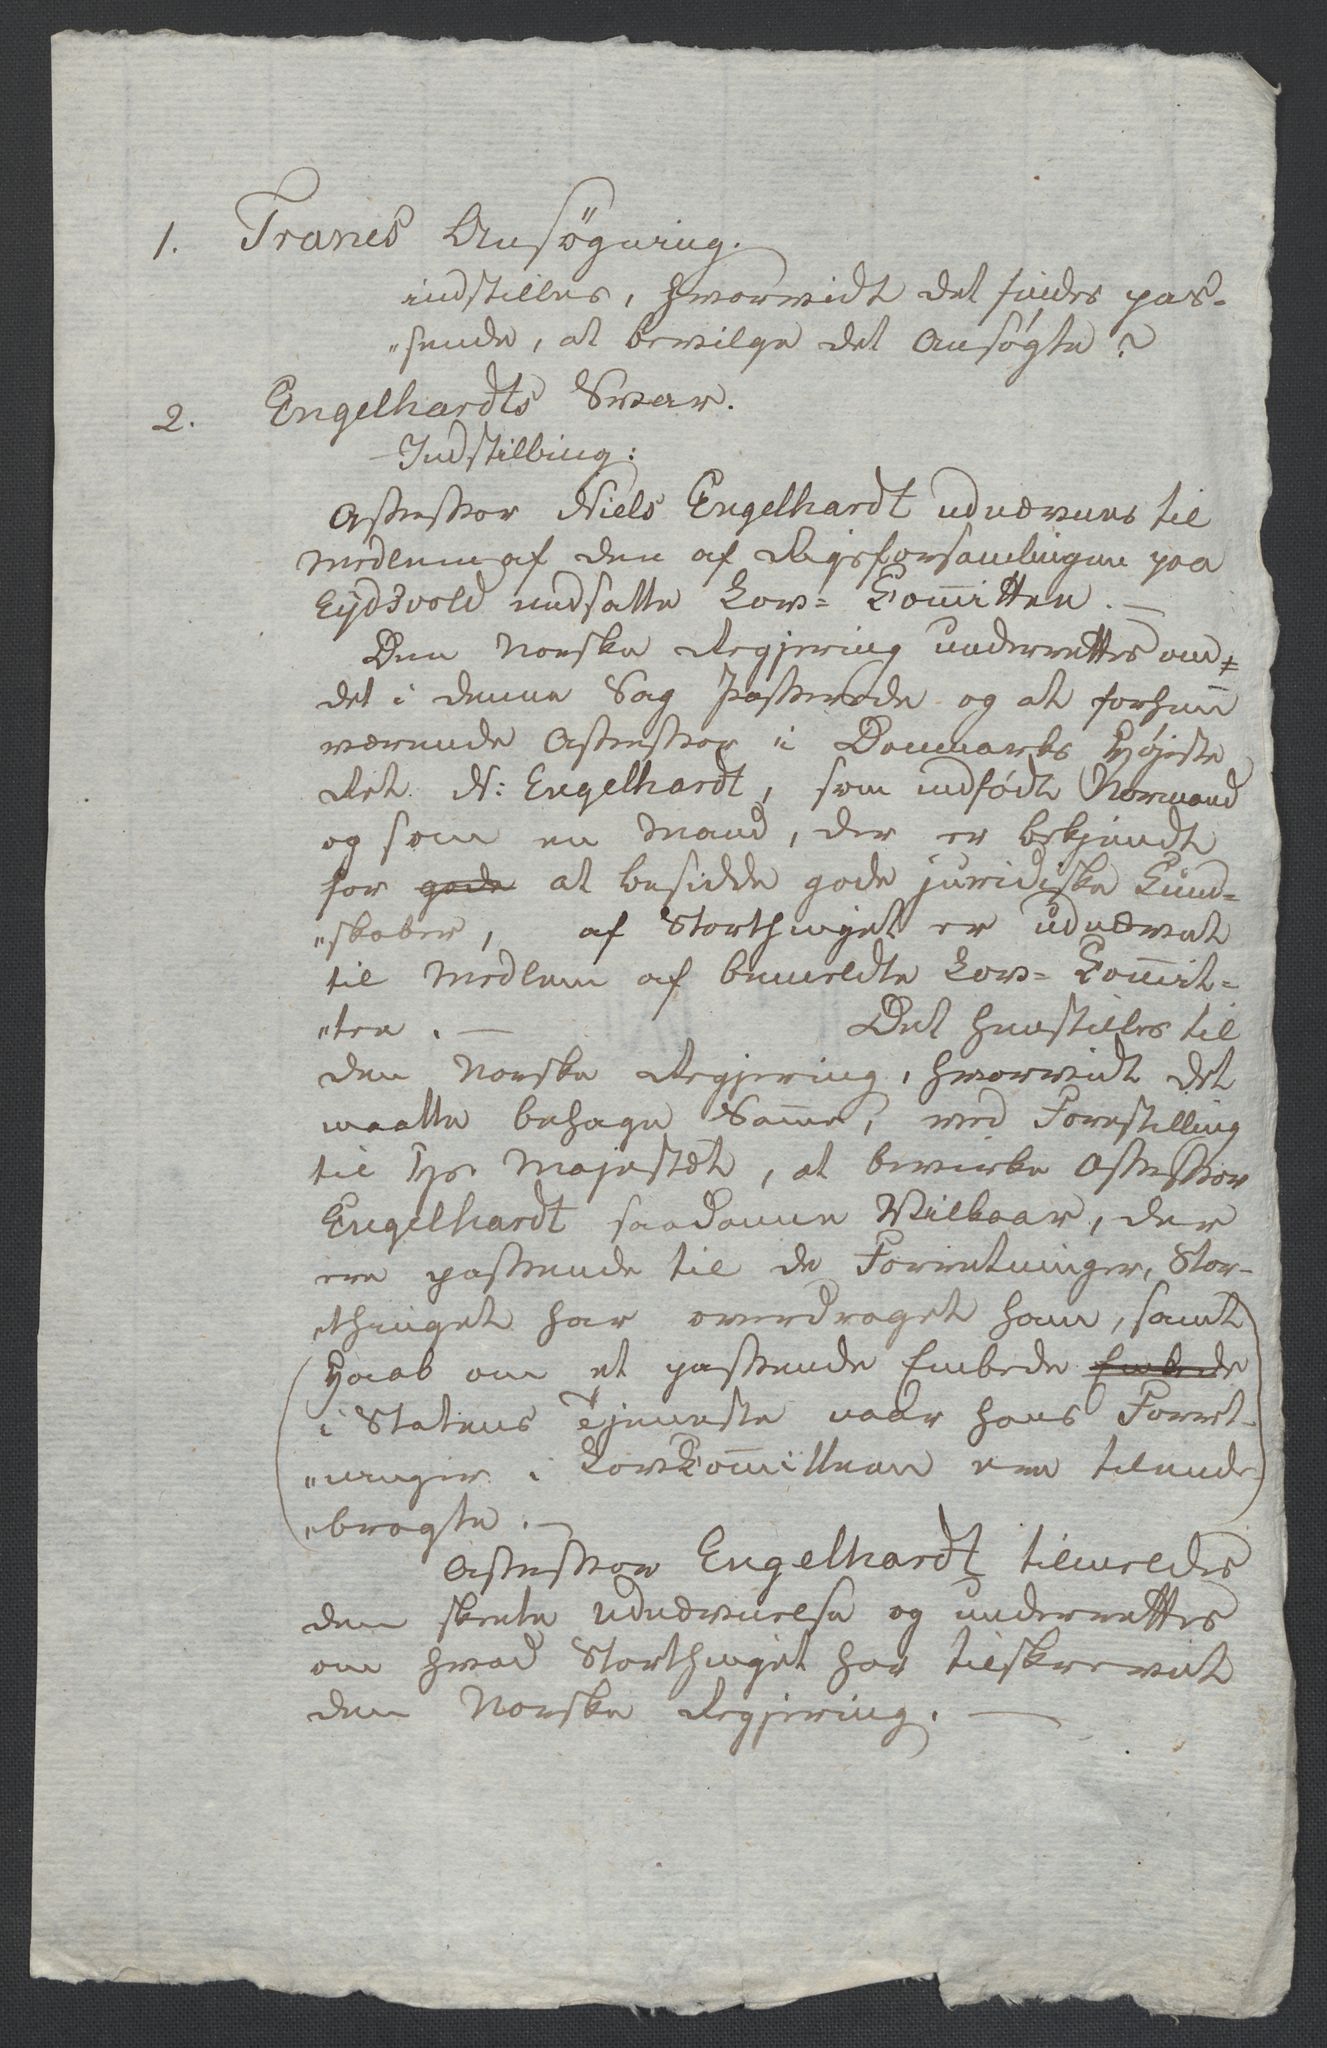 1. Tranes Ansøgning.
indstilles, hvorvidt det findes pas-
„sende, at bevilge det Ansøgte?
2. Engelhardts Svar.
Indstilling:
Assessor Niels Engelhardt udnævnes til
Medlem af den af Rigsforsamlingen paa
Eydsvold nedsatte Lov= Committee. —
Den Norske Regjering underrettes om
det i denne Sag Passerede og at forhen
værende Assessor i Danmarks Højeste
Ret N: Engelhardt, som indfødt Normand
og som en Mand, der er bekjendt
for gode at besidde gode juridiske Kund=
„skaber, af Storthinget er udnævnt
til Medlem af bemeldte Lov= Committ=
„tee. — Det henstilles til
den Norske Regjering, hvorvidt det
maatte behage Samme, ved Forestilling
til Hs Majestæt, at bevirke Assessor
Engelhardt saadanne Vilkaar, der
ere passende til de Forretninger, Stor-
„thinget har overdraget ham, samt
Haab om et passende Embede Embede
i Statens Tjeneste naar hans Forret-
„ninger i LovCommitteen ere tilende-
„bragte. —
Assessor Engelhardt tilmeldes
den skeete Udnævnelse og underrettes
om hvad Storthinget har tilskrevet
den Norske Regjering. —